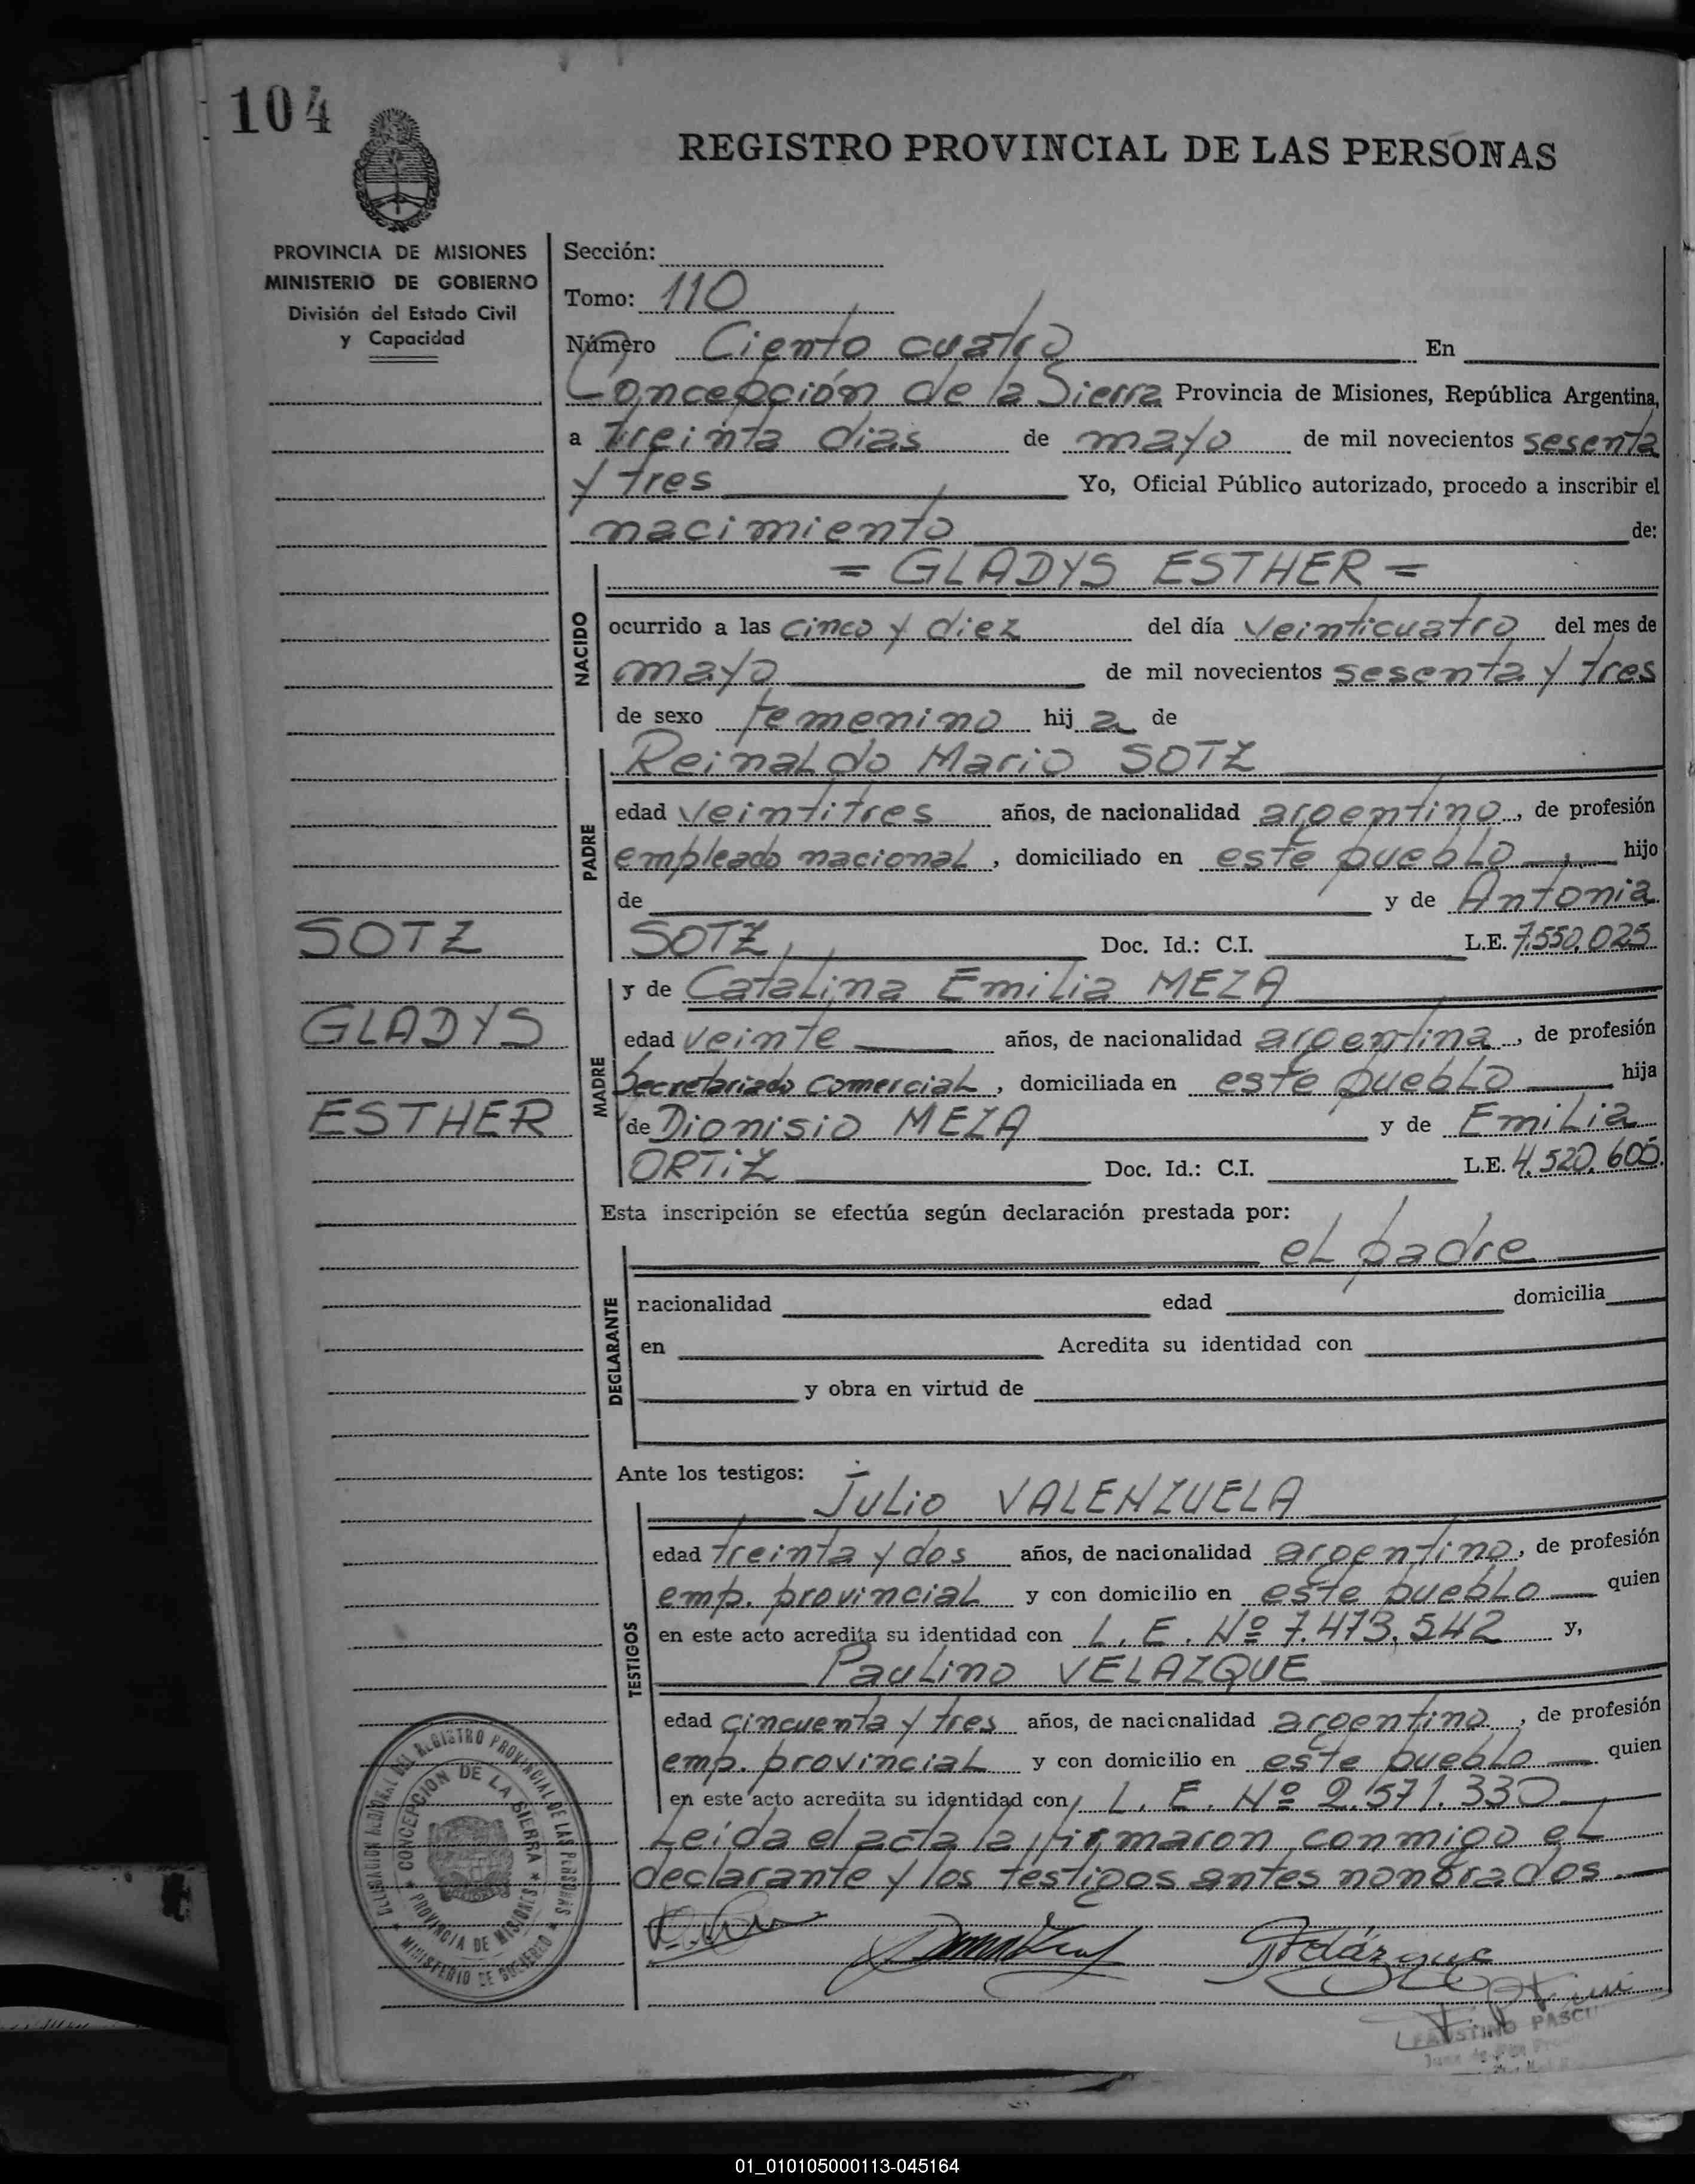 104
REGISTRO PROVINCIAL DE LAS PERSONAS
PROVINCIA DE MISIONES
MINISTERIO DE GOBIERNO
División del Estado Civil
y Capacidad
Sección:
Tomo: 110
Número Ciento cuatro En
Concepción de la Sierra Provincia de Misiones, República Argentina,
a treinta dias de mayo de mil novecientos sesenta
y tres Yo, Oficial Público autorizado, procedo a inscribir el
nacimiento de:
= GLADYS ESTHER =
NACIDO
ocurrido a las cinco y diez del día veinticuatro del mes de
mayo de mil novecientos sesenta y tres
de sexo femenino hij a de
Reinaldo Mario SOTZ
PADRE
edad veintitres años, de nacionalidad argentino, de profesión
empleado nacional, domiciliado en este pueblo hijo
de y de Antonia
SOTZ Doc. Id.: C.I. L.E. 7.550.025
SOTZ
GLADYS
ESTHER
y de Catalina Emilia MEZA
MADRE
edad veinte años, de nacionalidad argentina, de profesión
Secretariado Comercial, domiciliada en este pueblo hija
de Dionisio MEZA y de Emilia
ORTIZ Doc. Id.: C.I. L.E. 4.520.605.
Esta inscripción se efectúa según declaración prestada por:
el padre
DECLARANTE
nacionalidad edad domicilia
en Acredita su identidad con
y obra en virtud de
Ante los testigos:
Julio VALENZUELA
TESTIGOS
edad treinta y dos años, de nacionalidad argentino, de profesión
emp. provincial y con domicilio en este pueblo quien
en este acto acredita su identidad con L. E. Nº 7.473.542 y,
Paulino VELAZQUE
edad cincuenta y tres años, de nacionalidad argentino, de profesión
emp. provincial y con domicilio en este pueblo quien
en este acto acredita su identidad con L. E. Nº 2.571.330
Leída el acta la firmaron conmigo el
declarante y los testigos antes nonbrados.
DELEGACION DEL REGISTRO PROVINCIAL DE LAS PERSONAS
CONCEPCION DE LA SIERRA
PROVINCIA DE MISIONES
MINISTERIO DE GOBIERNO
PVelázque
FAUSTINO
01_010105000113-045164